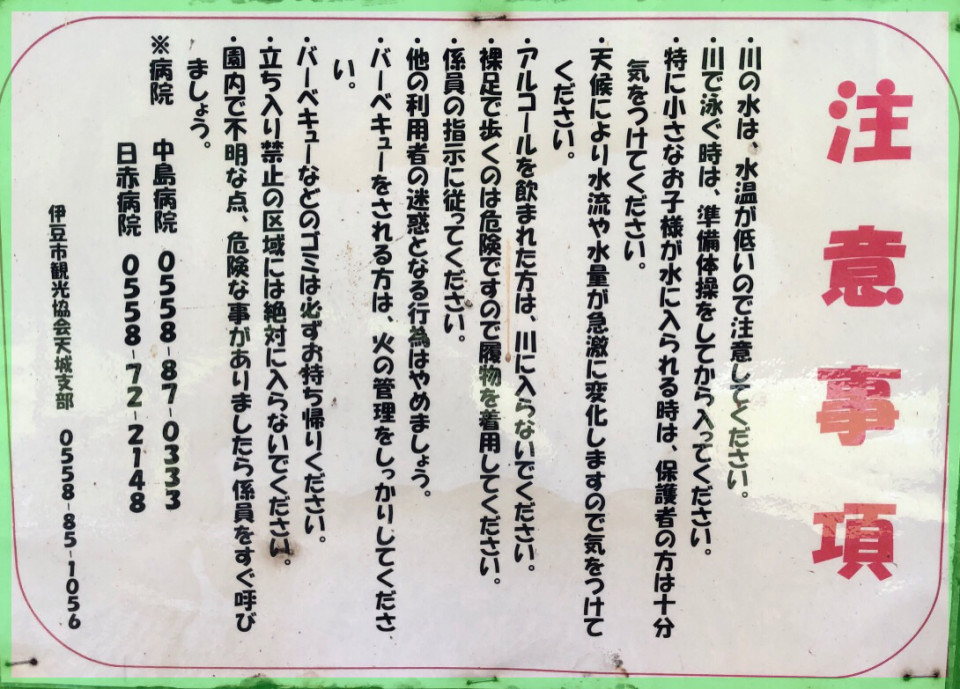 注意事項
・川の水は、水温が低いので注意してください。
・川で泳ぐ時は、準備体操をしてから入ってください。
・特に小さなお子様が水に入られる時は、保護者の方は十分
気をつけてください。
・天候により水流や水量が急激に変化しますので気をつけて
ください。
・アルコールを飲まれた方は、川に入らないでください。
・裸足で歩くのは危険ですので履物を着用してください。
・係員の指示に従ってください。
・他の利用者の迷惑となる行為はやめましょう。
・バーベキューをされる方は、火の管理をしっかりしてくださ
い。
・バーベキューなどのゴミは必ずお持ち帰りください。
・立ち入り禁止の区域には絶対に入らないでください。
・園内で不明な点、危険な事がありましたら係員をすぐ呼び
ましょう。
※病院 中島病院 0558-87-0333
日赤病院 0558-72-2148
伊豆市観光協会天城支部 0558-85-1056